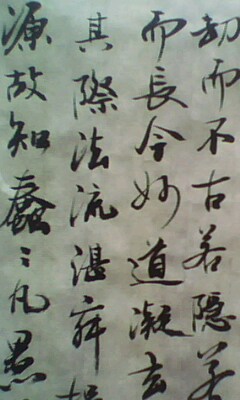 劫而不古若隱若
而長今妙道凝玄
其際法流湛寂挹
源故知蠢々凡愚